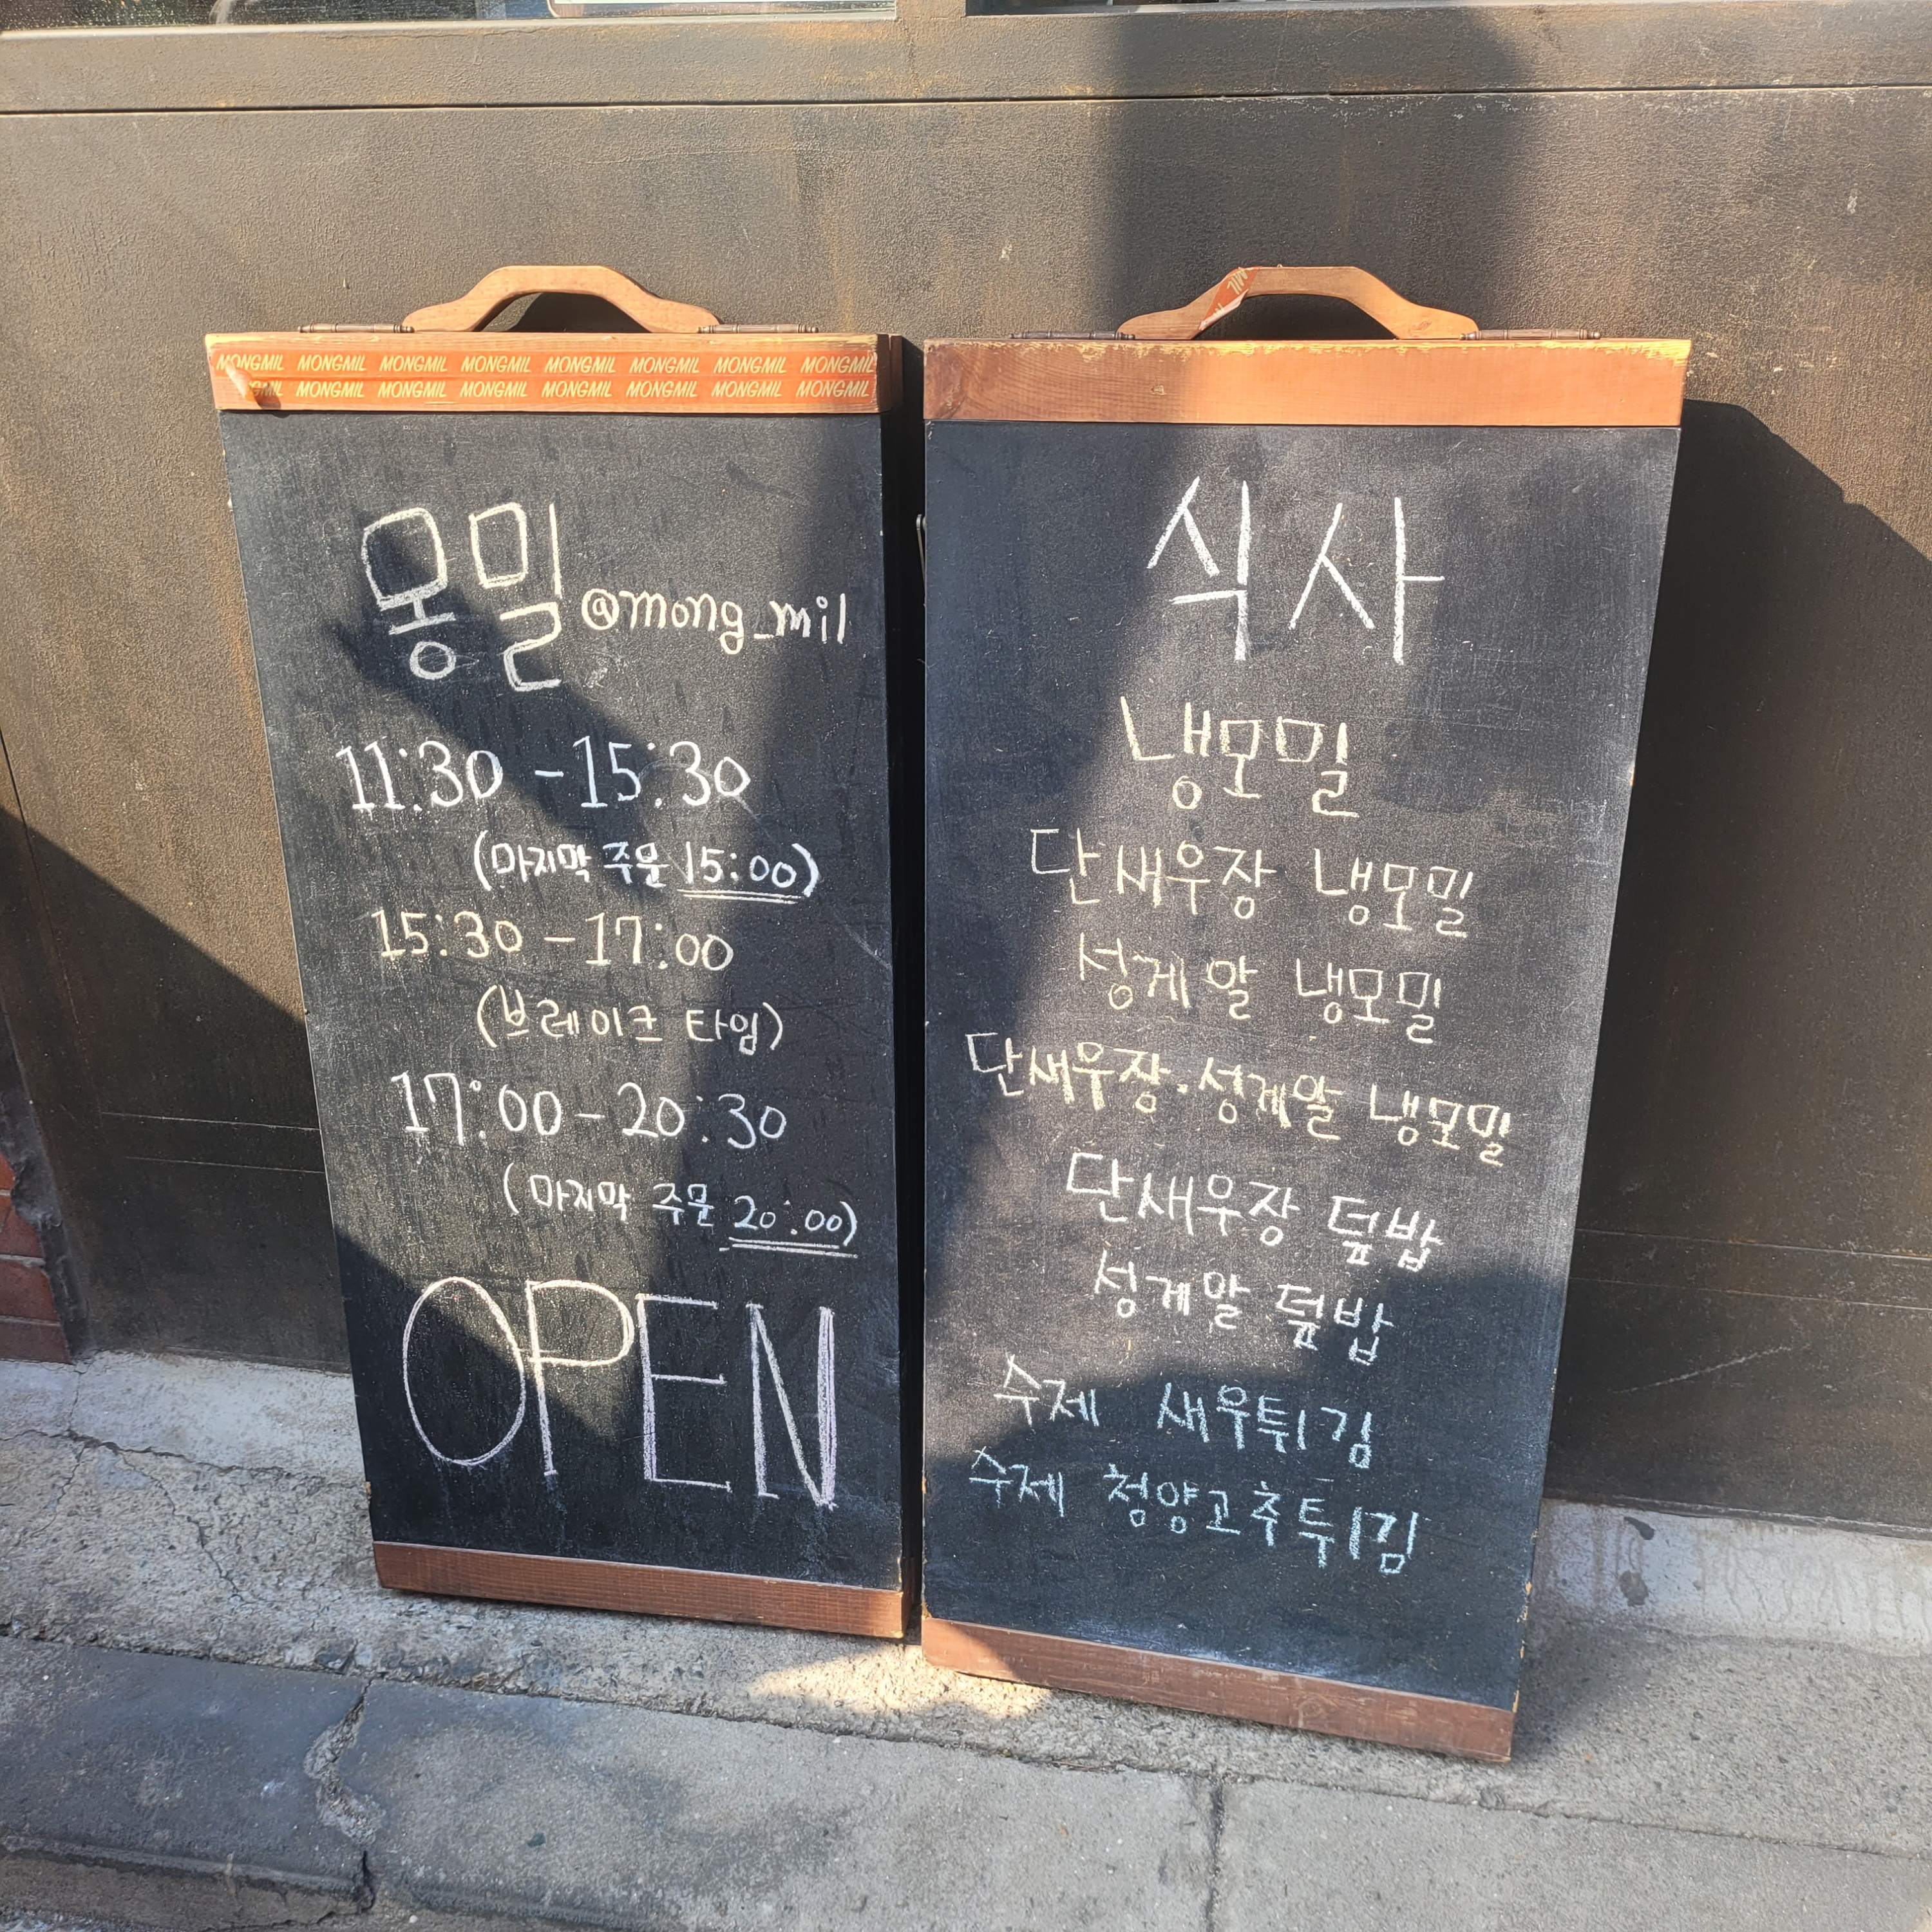 MONGMIL MONGMIL MONGMIL MONGMIL MONGMIL MONGMIL MONGMIL MONGMIL
MONGMIL MONGMIL MONGMIL MONGMIL MONGMIL MONGMIL MONGMIL
몽밀 @mong_mil
11:30 - 15:30
(마지막 주문 15:00)
15:30 - 17:00
(브레이크 타임)
17:00 - 20:30
(마지막 주문 20:00)
OPEN
식사
냉모밀
단새우장 냉모밀
성게알 냉모밀
단새우장·성게알 냉모밀
단새우장 덮밥
성게알 덮밥
수제 새우튀김
수제 청양고추튀김